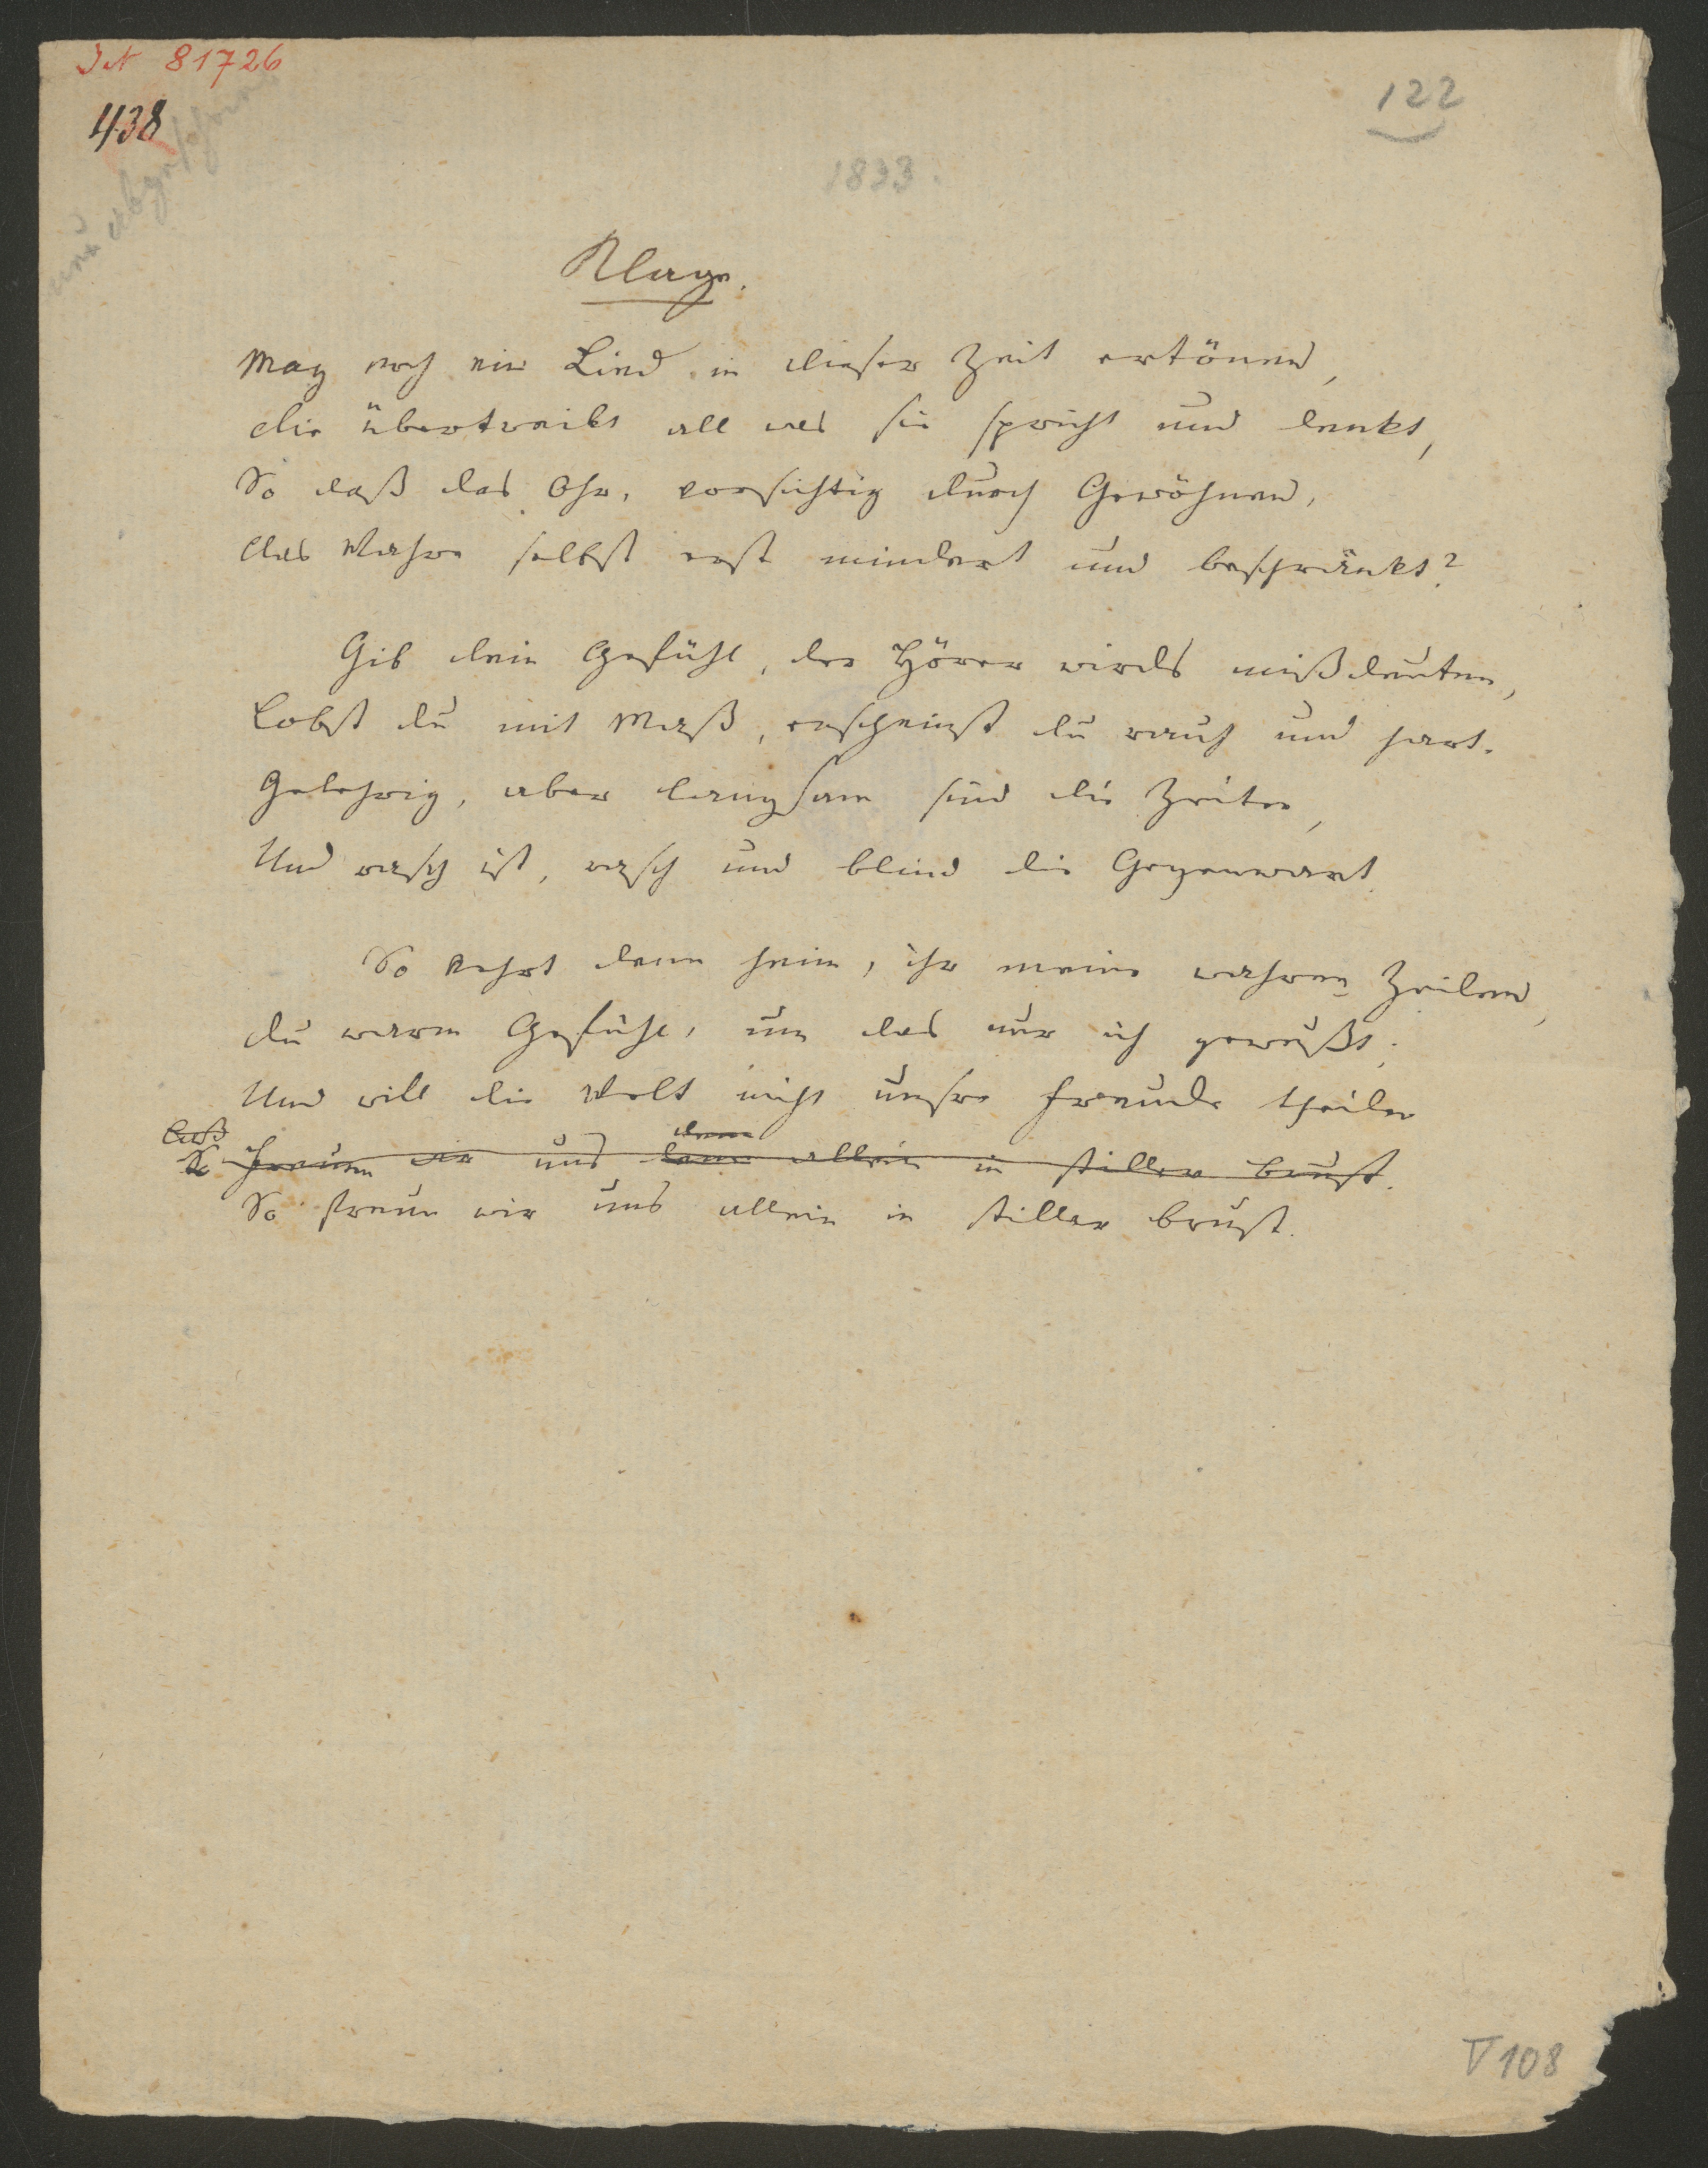 JN 81726
438
122
1833.
Klage.
Mag noch ein Lied in dieser Zeit ertönen,
die übertreibt all was sie spricht und denkt,
So daß das Ohr, vorsichtig durch Gewöhnen,
das Wahre selbst erst mindert und beschränkt?
Gib dein Gefühl, der Hörer wirds mißdeuten,
Lobst du mit Maß, erscheinst du rauh und hart.
Gelehrig, aber langsam sind die Zeiten,
Und rasch ist, rasch und blind die Gegenwart.
So kehrt denn heim, ihr meine wahren Zeilen,
du warm Gefühl, um das nur ich gewußt.
Und will die Welt nicht unsre Freude theilen
Laß
denn
So freuen wir uns denn allein in stiller Brust.
So freun wir uns allein in stiller Brust.
V 108